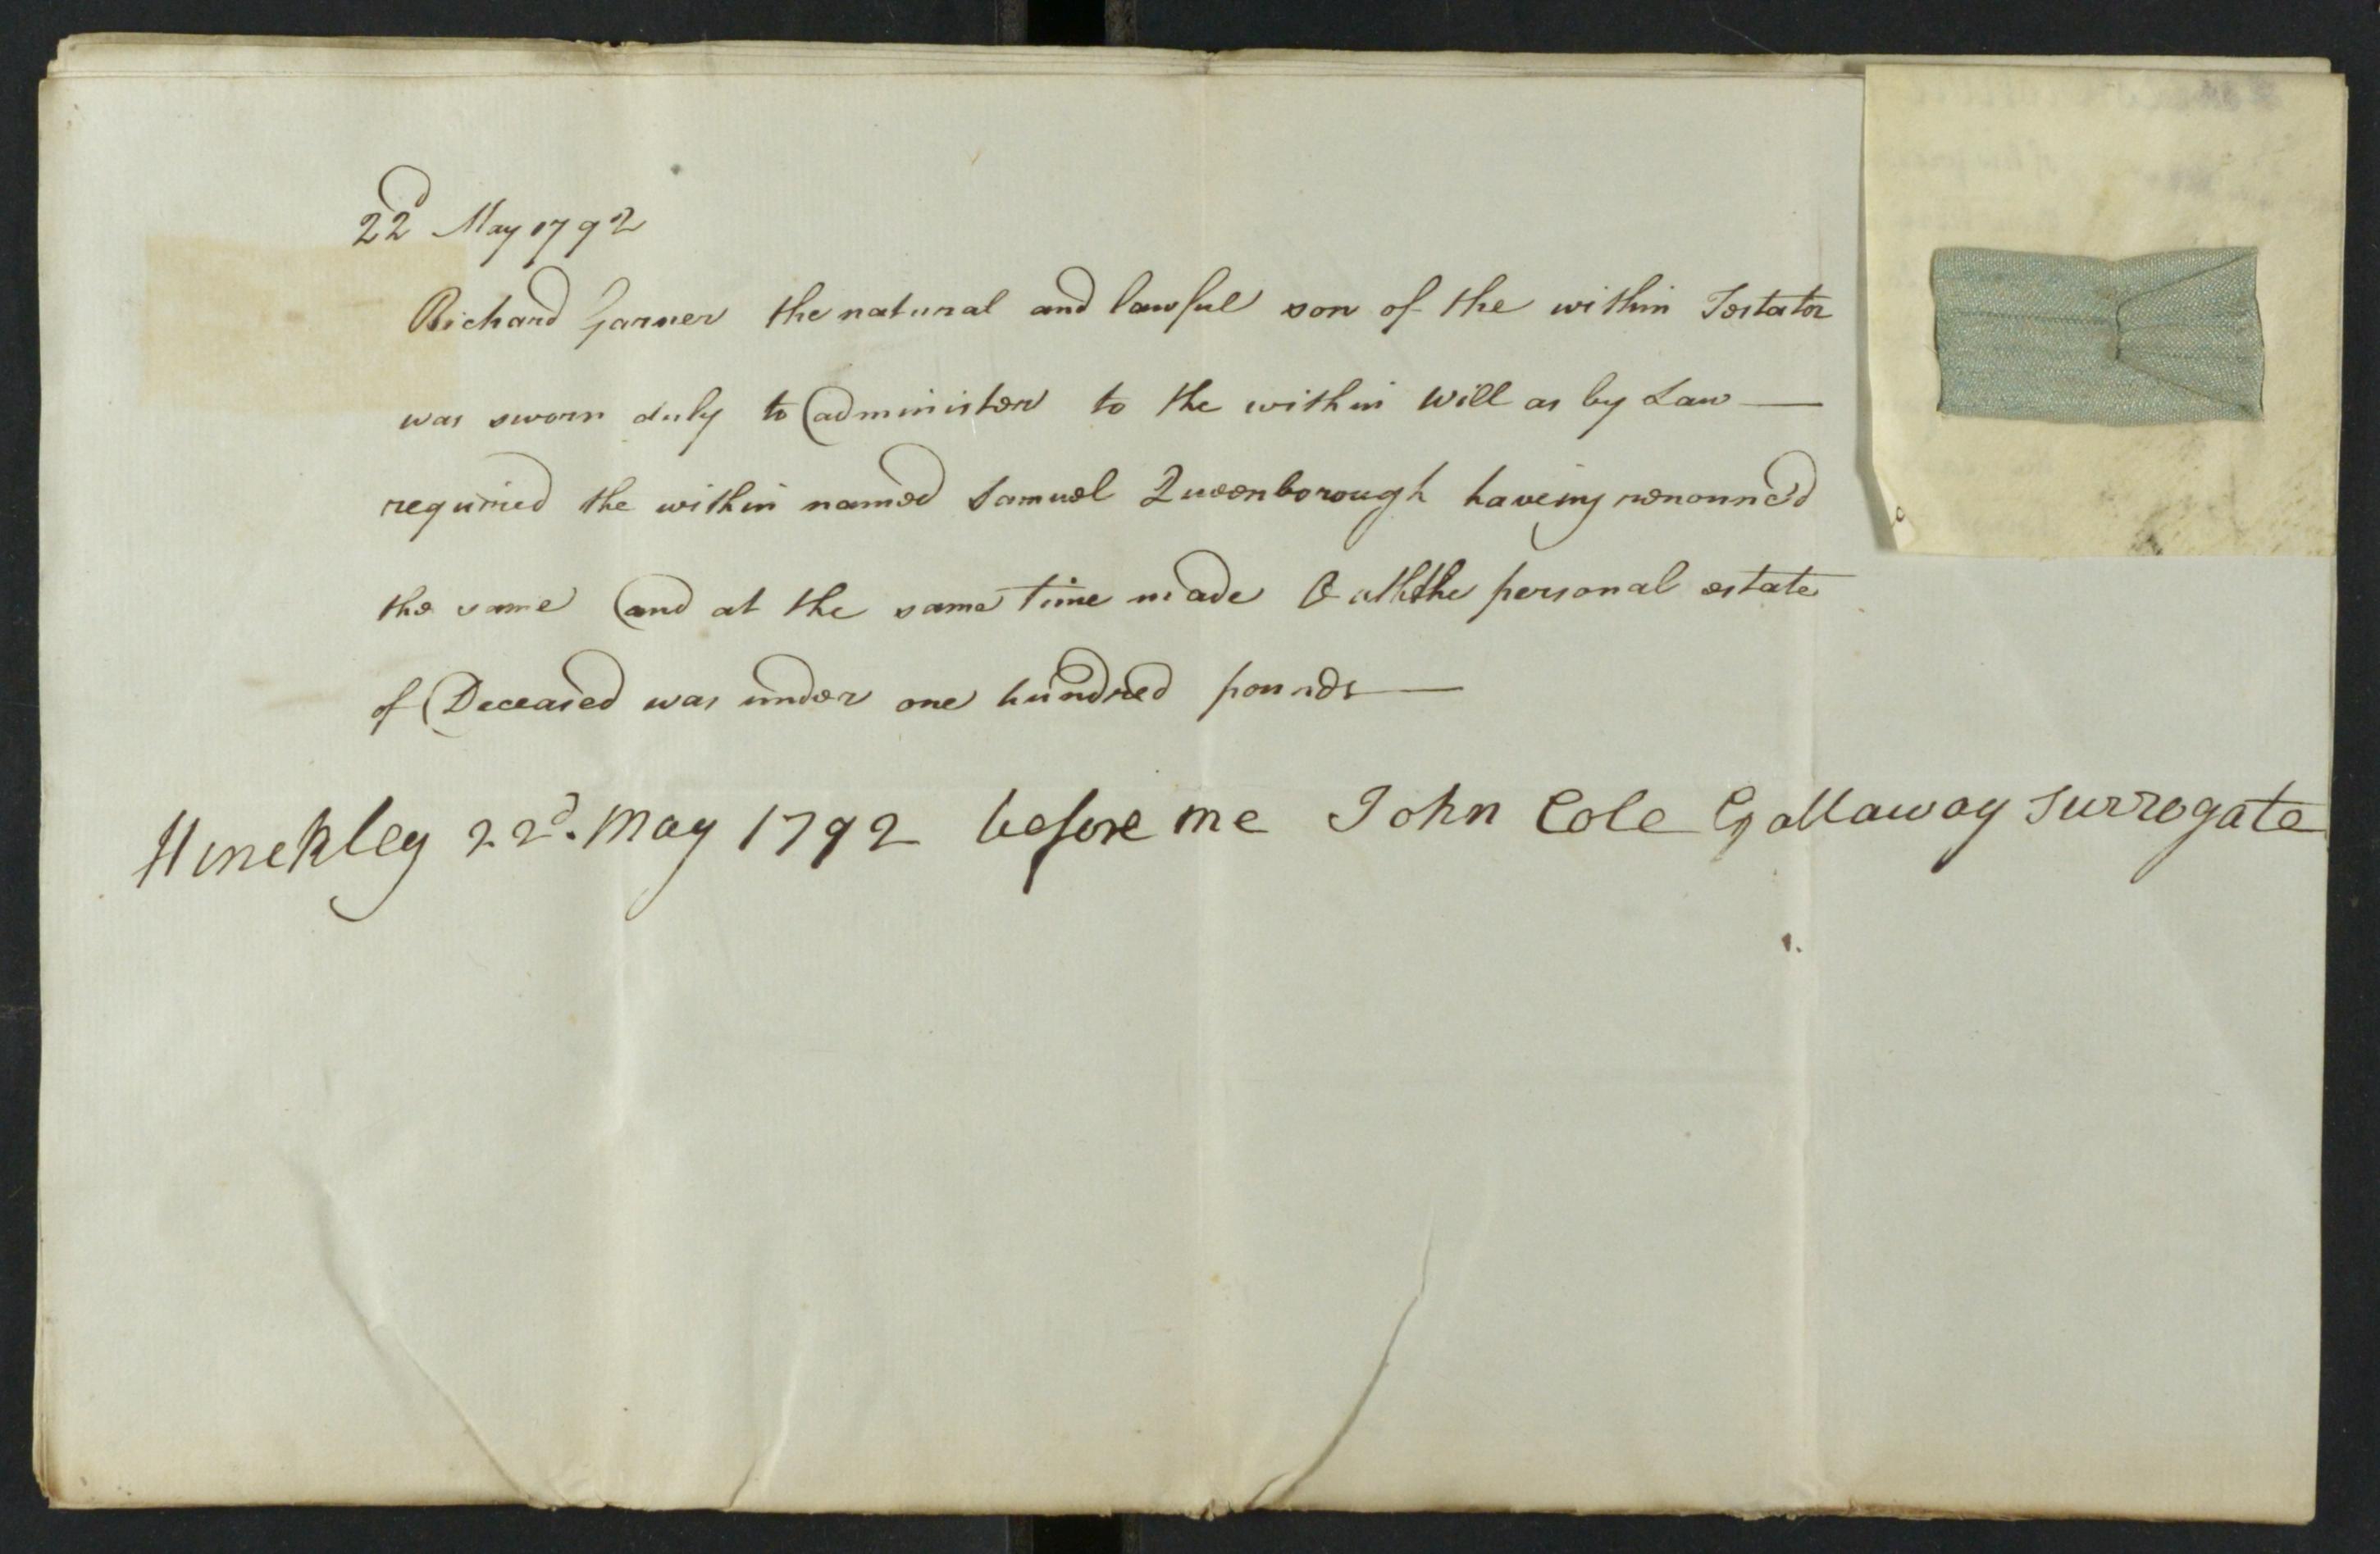 22d May 1792
Richard Garner the natural and lawful son of the within Testator
was sworn duly to administer to the within Will as by Law —
required the within named Samuel Queenborough haveing renounc'd
the same and at the same time made Oath the personal estate
of Deceased was under one hundred pounds —
Hinckley 22d. May 1792 before me John Cole Gallaway Surrogate